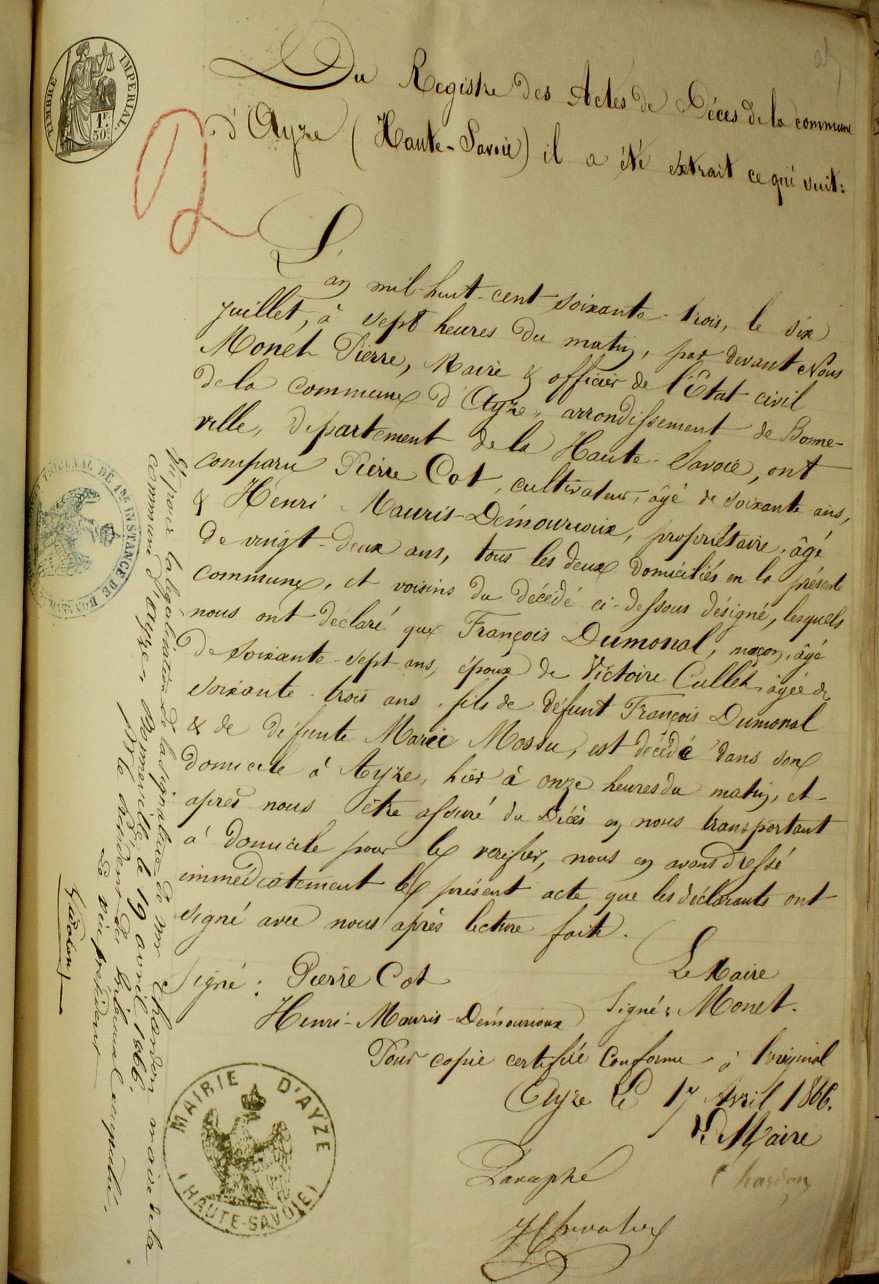 TIMBRE IMPERIAL
1F
50c
Du Registre des Actes de Décès de la commune
d'Ayze (Haute-Savoie) il a été extrait ce qui suit:
L'an mil-huit-cent soixante-trois, le six
juillet, à sept heures du matin, par devant Nous
Monet Pierre, Maire & officier de l'Etat civil
de la commune d'Ayze, arrondissement de Bonne-
ville, département de la Haute-Savoie, ont
comparu Pierre Cot, cultivateur, âgé de soixante ans,
& Henri Mauris-Demourioux, propriétaire, âgé
de vingt-deux ans, tous les deux domiciliés en la présente
commune, et voisins du décédé ci-dessous désigné, lesquels
nous ont déclaré que François Dumonal, maçon, âgé
de soixante-sept ans, époux de Victoire Cullet, âgée de
soixante-trois ans, fils de défunt François Dumonal
& de défunte Marie Mossu, est décédé dans son
domicile à Ayze, hier à onze heures du matin, et
après nous être assuré du Décès en nous transportant
à domicile pour le vérifier, nous en avons dressé
immédiatement le présent acte que les déclarants ont
signé avec nous après lecture faite.
Signé: Pierre Cot
Le Maire
Henri-Mauris-Demourioux
Signé: Monet.
Pour copie certifiée conforme à l'original
Ayze le 17 Avril 1866.
Le Maire
Chardon
Paraphé
MAIRIE D'AYZE
(HAUTE-SAVOIE)
TRIBUNAL DE 1ère INSTANCE DE BONNEVILLE
Vu pour la légalisation de la signature de Mr Chardon maire de la
commune d'Ayze, Bonneville le 19 avril 1866.
Pr le Président du tribunal empêché,
Le vice président